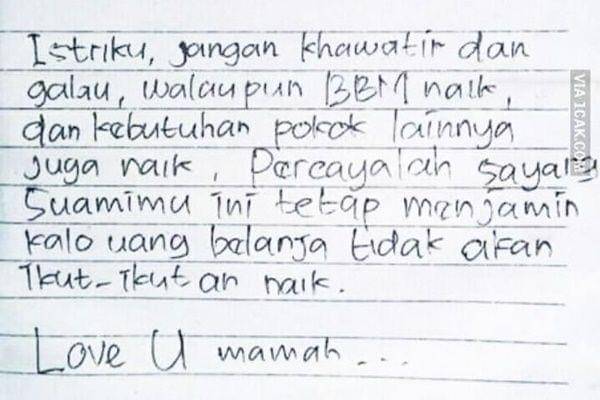 Istriku, jangan khawatir dan
galau, walaupun BBM naik,
dan kebutuhan pokok lainnya
juga naik, Percayalah sayang
Suamimu ini tetap menjamin
kalo uang belanja tidak akan
Ikut-ikutan naik.
Love U mamah...
VIA 1CAK.COM